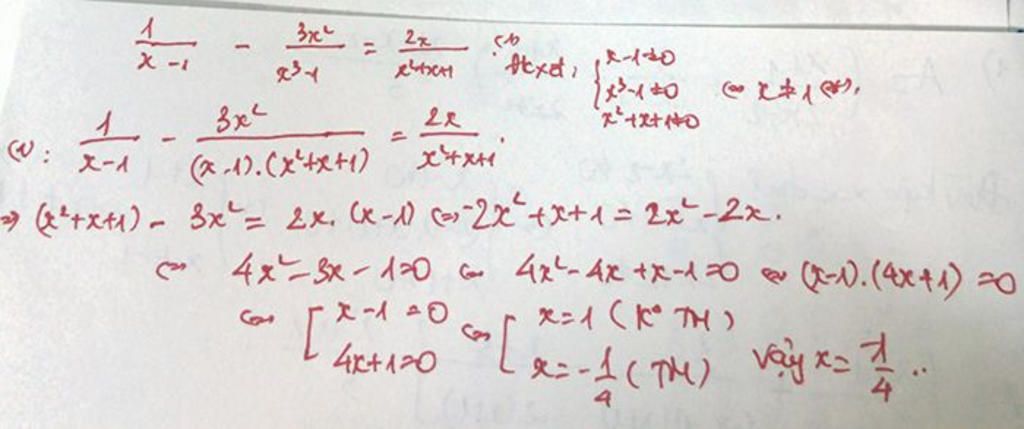 1/(x-1) - 3x²/(x³-1) = 2x/(x²+x+1) (1) đkxđ: { x-1≠0 ; x³-1≠0 ; x²+x+1≠0 ⇔ x≠1 (*).
(1): 1/(x-1) - 3x²/((x-1).(x²+x+1)) = 2x/(x²+x+1).
⇒ (x²+x+1) - 3x² = 2x.(x-1) ⇔ -2x²+x+1 = 2x²-2x.
⇔ 4x²-3x-1=0 ⇔ 4x²-4x+x-1=0 ⇔ (x-1).(4x+1)=0
⇔ [ x-1=0 ; 4x+1=0 ⇔ [ x=1 (K° TM) ; x=-1/4 (TM) Vậy x=-1/4 ..